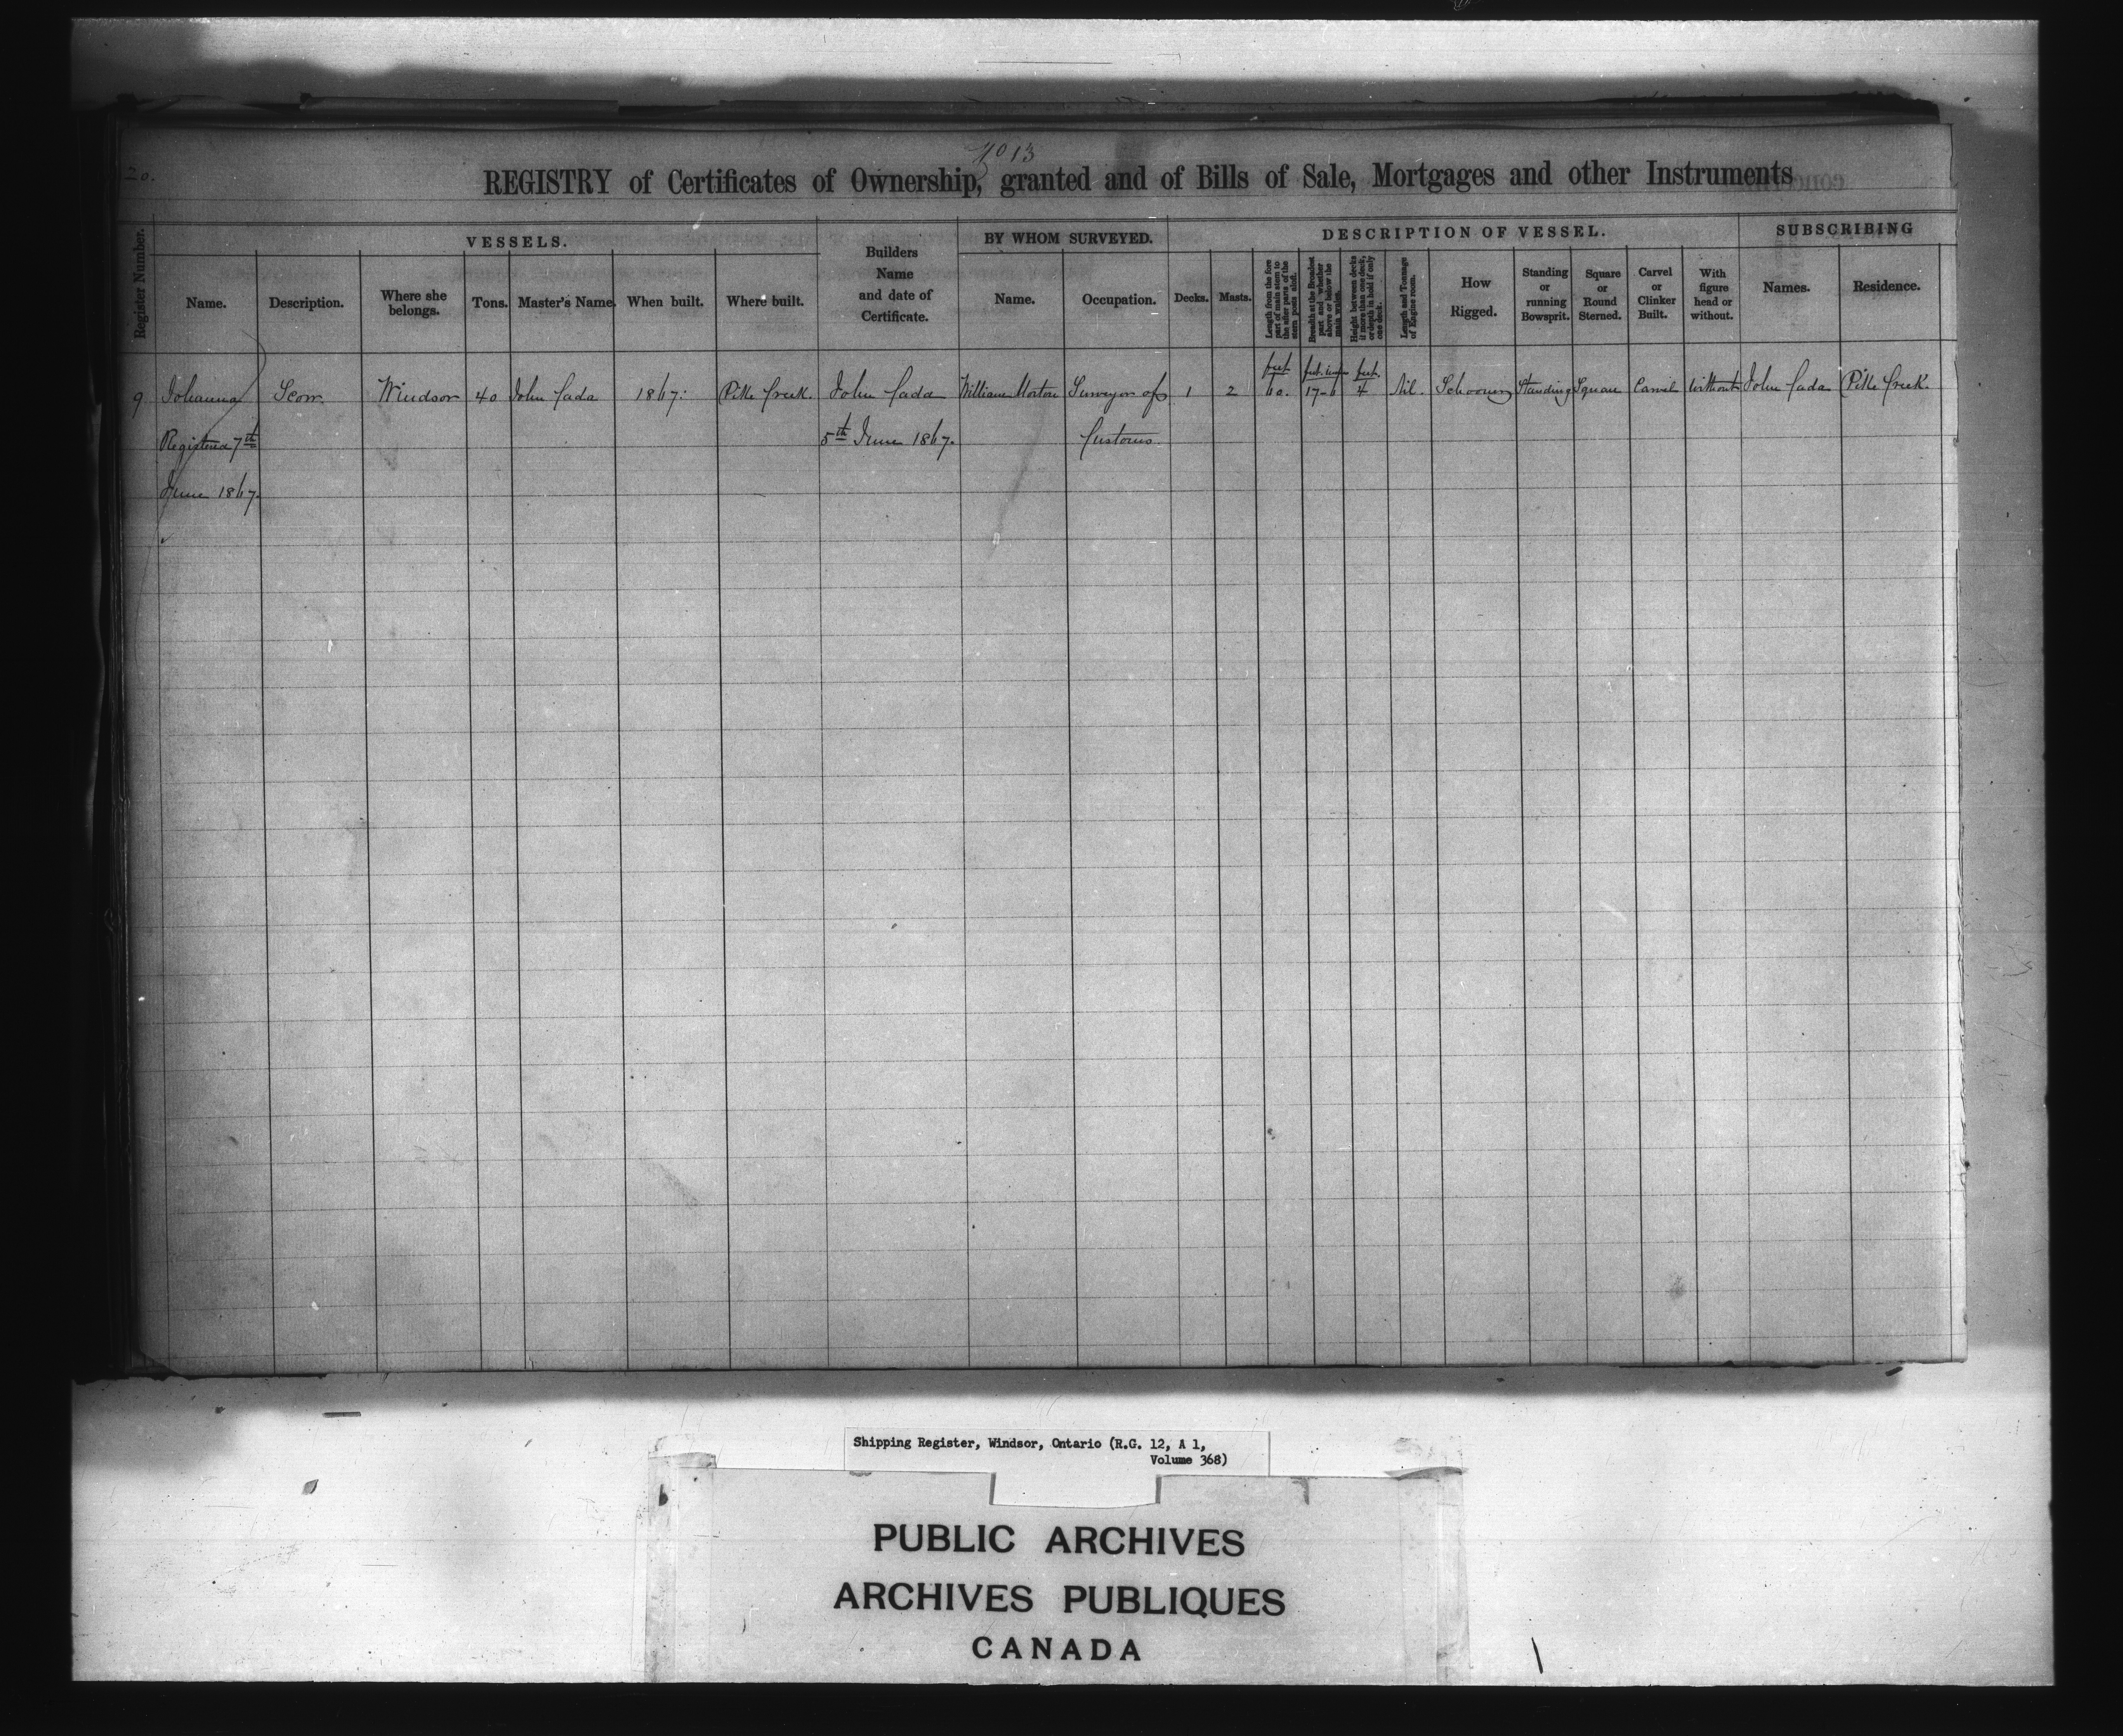 20.
No 13
REGISTRY of Certificates of Ownership, granted and of Bills of Sale, Mortgages and other Instruments
Register Number.
VESSELS.
Name.
Description.
Where she belongs.
Tons.
Master's Name.
When built.
Where built.
Builders
Name
and date of
Certificate.
BY WHOM SURVEYED.
Name.
Occupation.
DESCRIPTION OF VESSEL.
Decks.
Masts.
Length from the fore part of main stem to the after parts of the stern posts aloft.
Breadth at the Broadest part and whether above or below the main wales.
Height between decks if more than one deck, or depth in hold if only one deck.
Length and Tonnage of Engine room.
How Rigged.
Standing or running Bowsprit.
Square or Round Sterned.
Carvel or Clinker Built.
With figure head or without.
SUBSCRIBING
Names.
Residence.
feet feet. inches feet.
9 Johanna Scow. Windsor 40 John Cada 1867. Pike Creek. John Cada William Morton Surveyor of 1 2 60. 17-6 4 Nil. Schooner Standing Square Carvel Without John Cada Pike Creek.
Registered 7th 5th June 1867. Customs.
June 1867.
Shipping Register, Windsor, Ontario (R.G. 12, A 1,
Volume 368)
PUBLIC ARCHIVES
ARCHIVES PUBLIQUES
CANADA